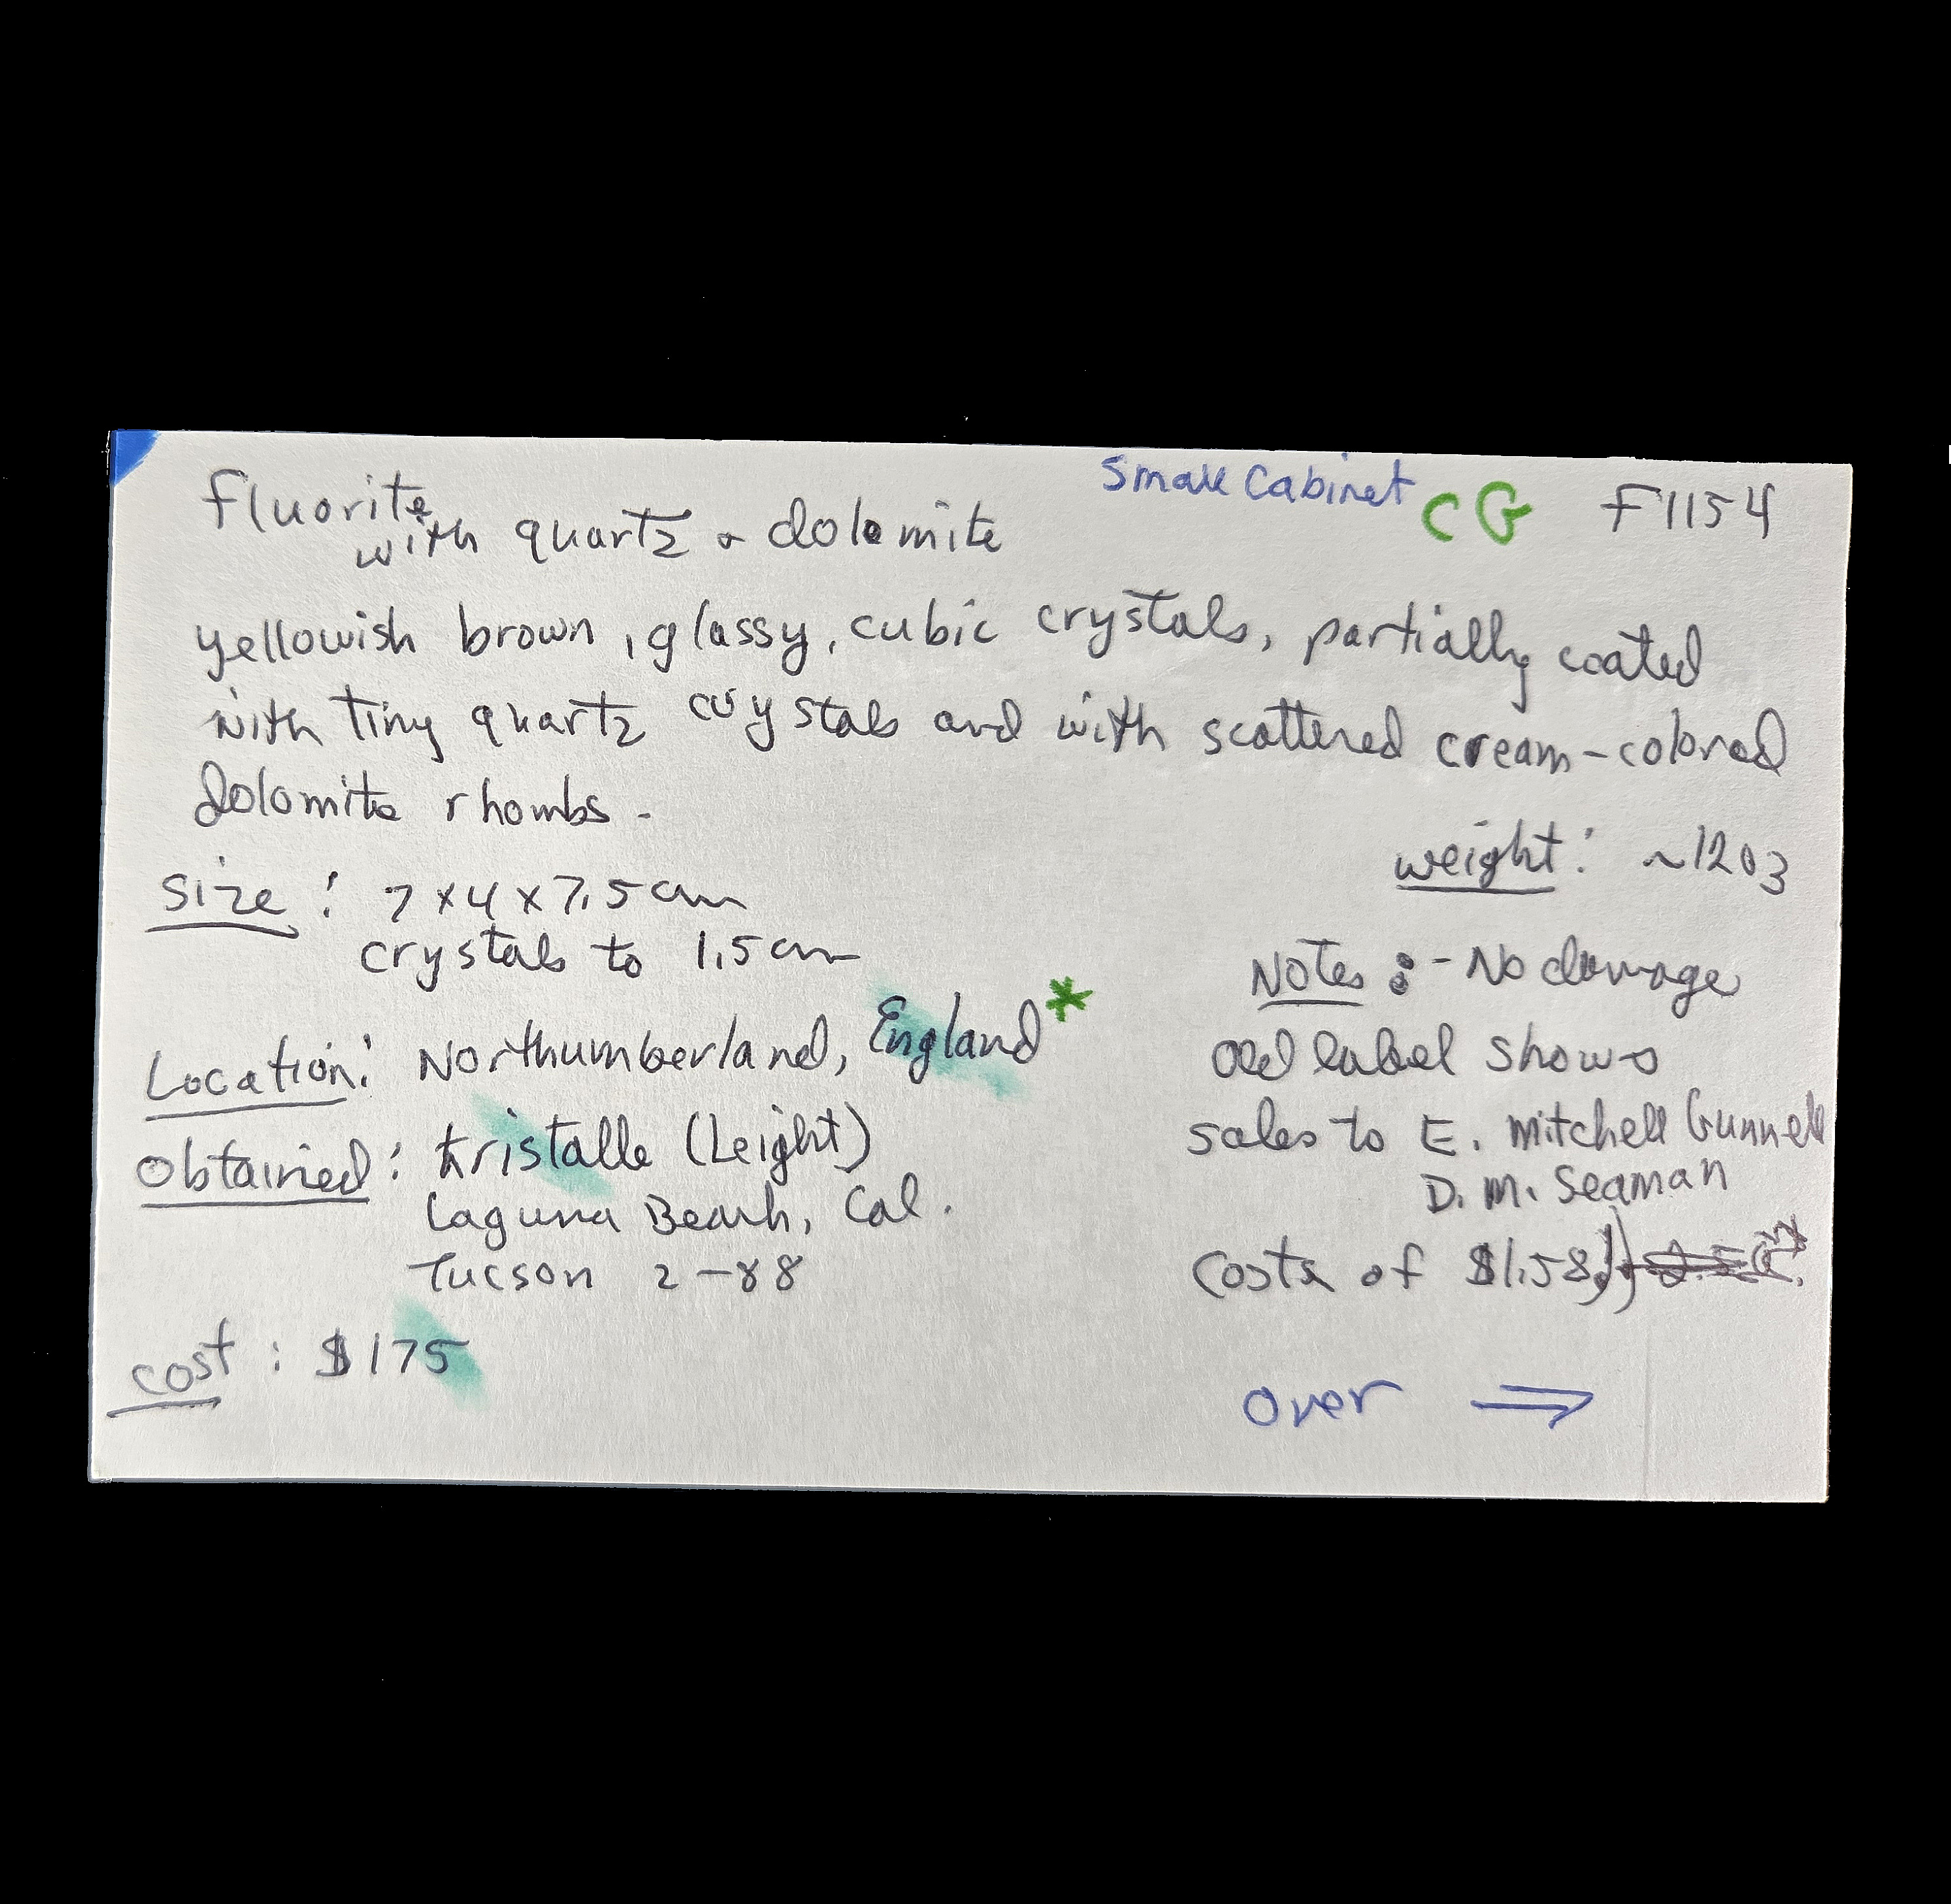 Small Cabinet CG F1154
Fluorite
with quartz & dolomite
yellowish brown, glassy, cubic crystals, partially coated
with tiny quartz crystals and with scattered cream-colored
dolomite rhombs.
weight: ~12oz
Size: 7 x 4 x 7.5 cm
crystals to 1.5 cm
Notes: - No damage
Location: Northumberland, England*
old label shows
Obtained: Kristalle (Leight)
sales to E. Mitchell Gunnell
D. M. Seaman
Laguna Beach, Cal.
Tucson 2-88
costs of $1.58
cost: $175
over ⇒